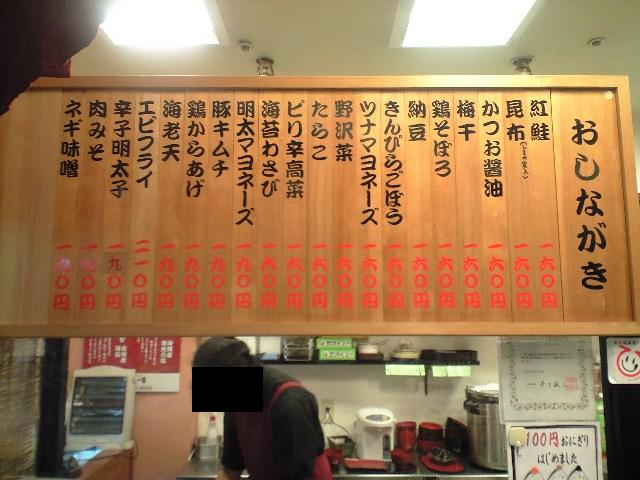 おしながき
紅鮭 一六〇円
昆布(しその実入) 一六〇円
かつお醤油 一六〇円
梅干 一六〇円
鶏そぼろ 一六〇円
納豆 一六〇円
きんぴらごぼう 一六〇円
ツナマヨネーズ 一六〇円
野沢菜 一六〇円
たらこ 一六〇円
ピリ辛高菜 一六〇円
海苔わさび 一六〇円
明太マヨネーズ 一九〇円
豚キムチ 一九〇円
鶏からあげ 一九〇円
海老天 一九〇円
エビフライ 二一〇円
辛子明太子 一九〇円
肉みそ
ネギ味噌
100円おにぎり
はじめました